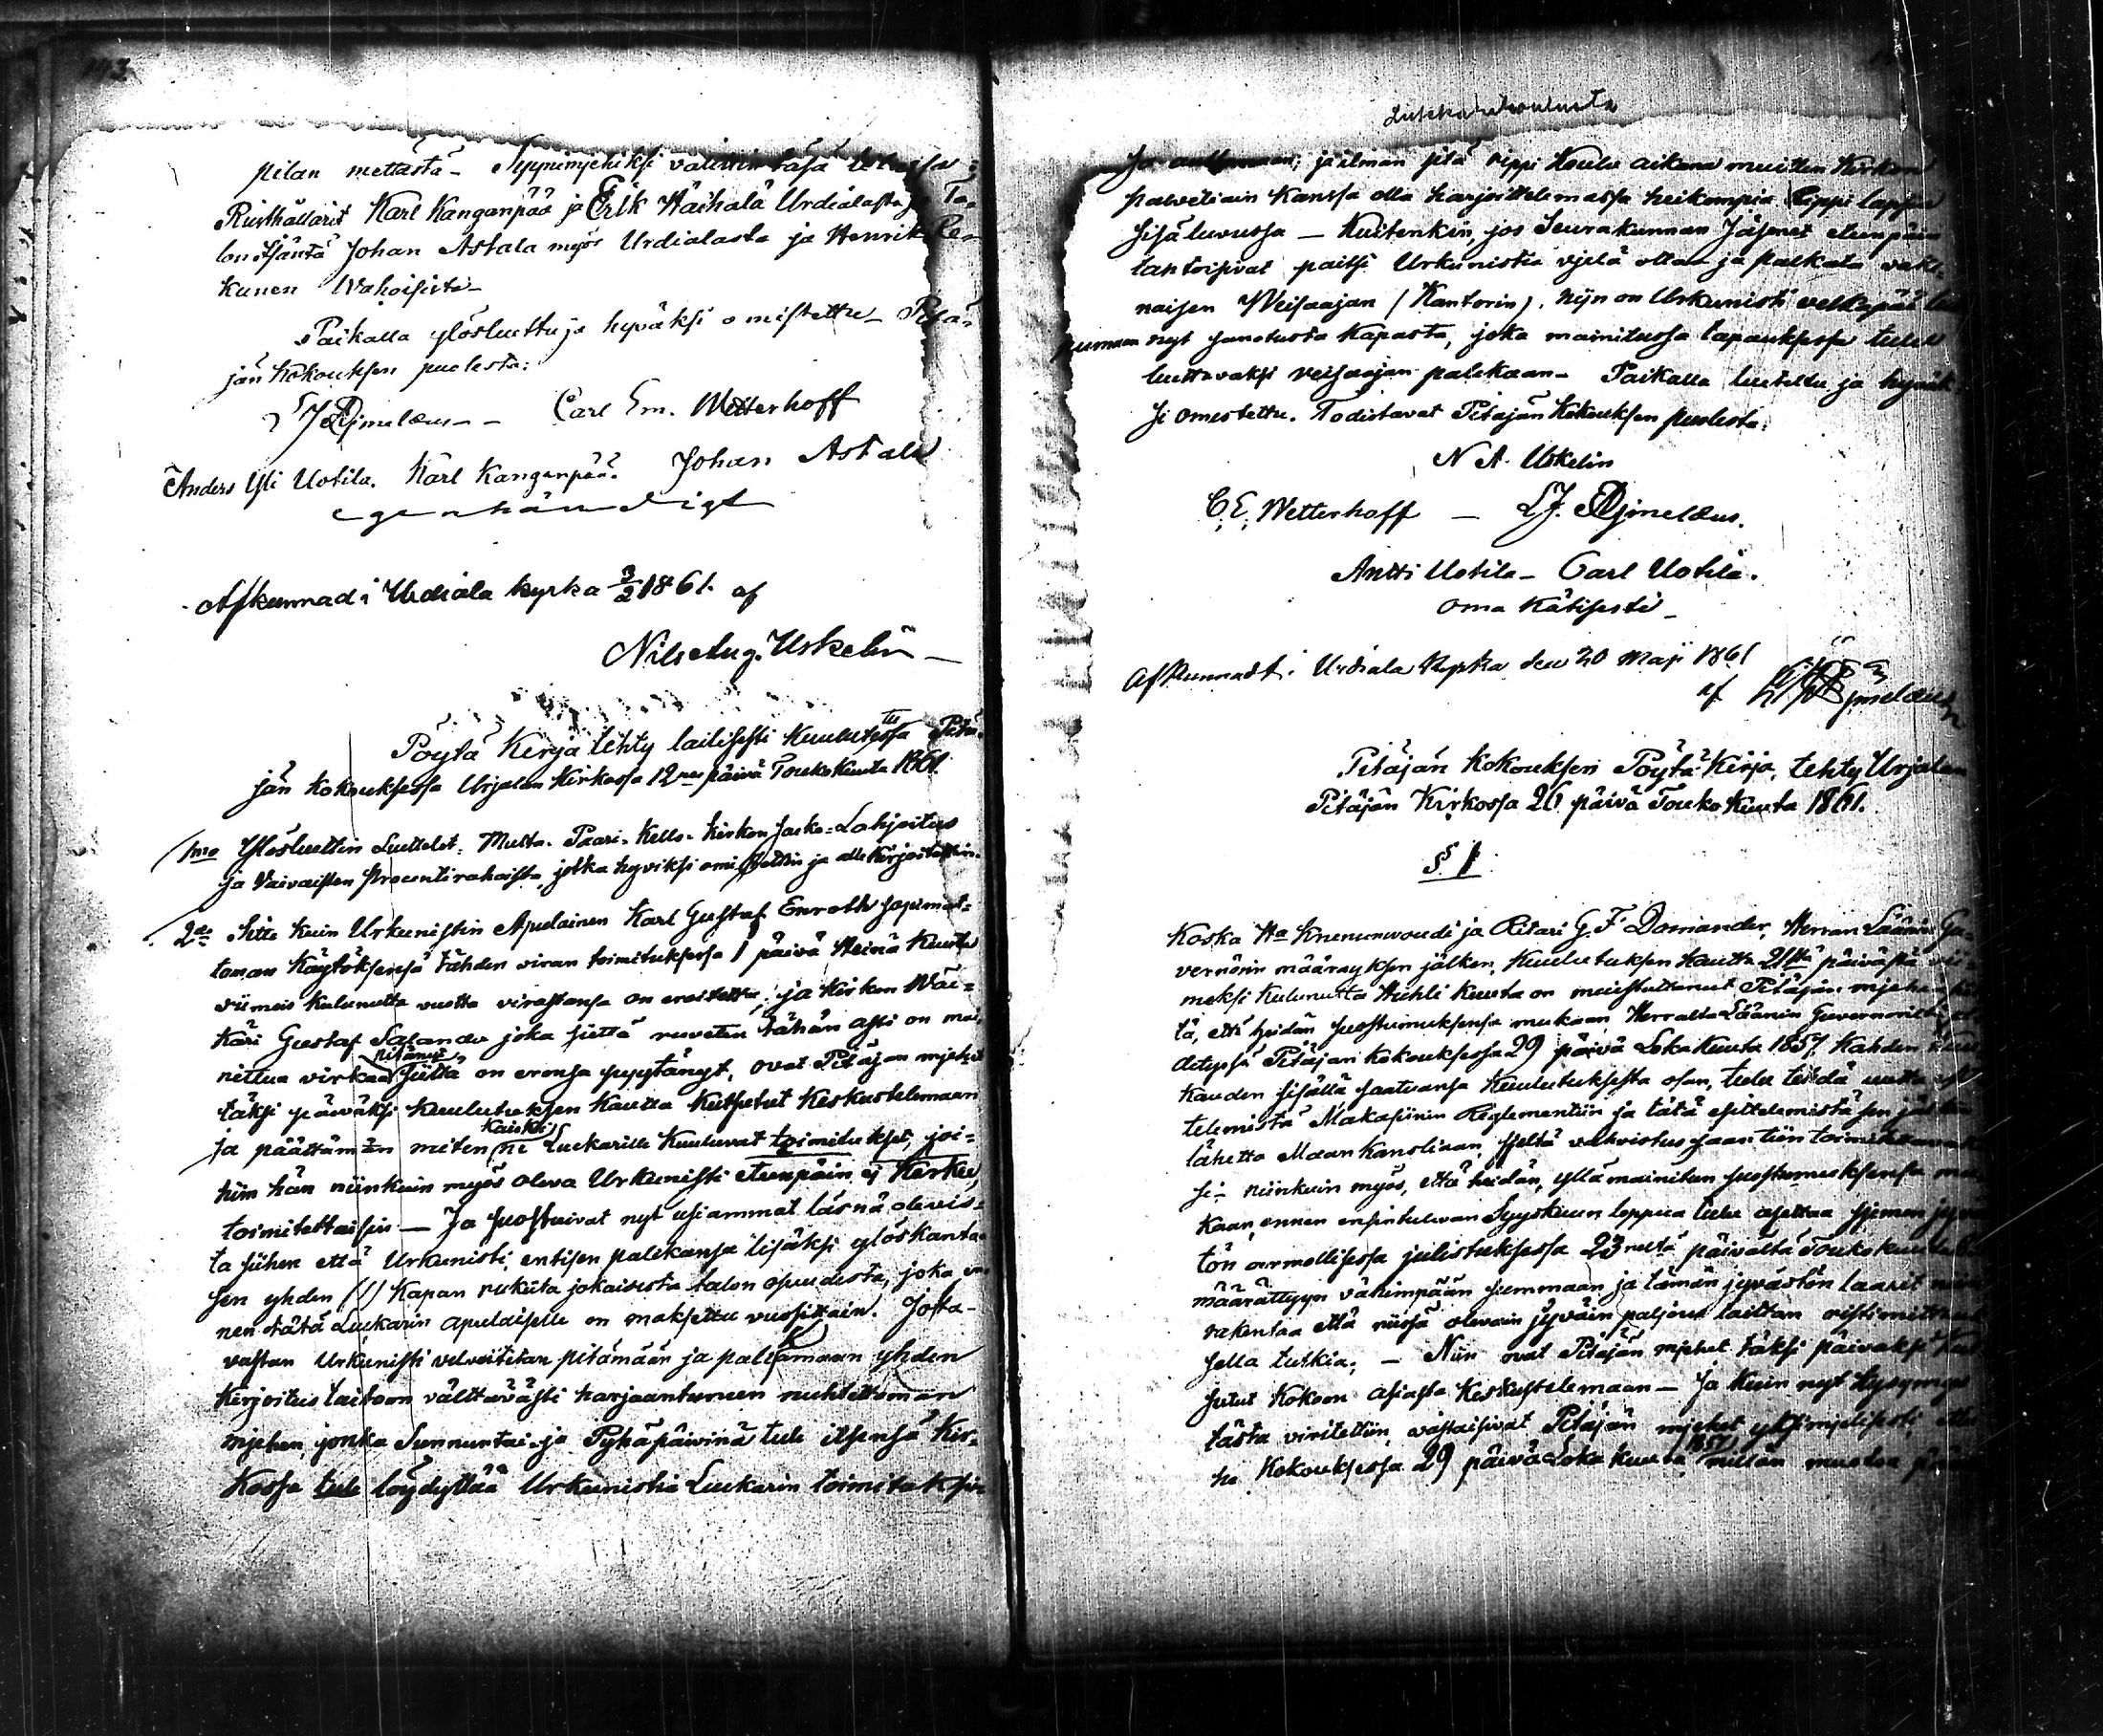 113
pilan mettästä – Syynimjehiksi valittin täsä
Rusthållarit Karl Kanganpää ja Erik Häihälä Urdialasta ja Ta-
lon Isäntä Johan Astala myös Urdialasta ja Henrik
kunen Wahoisista –
Paikalla ylösluettu ja hyväksi omistettu – Pitä-
jän Kokouksen puolesta:
Carl Em. Wetterhoff
Anders Yli Uotila. Karl Kanganpää. Johan Astala
egenhändigt
Afkunnad i Urdiala kyrka 3/2 1861. af
Nils Aug. Uskelin –
Pöytä Kirja tehty lailisesti Kuulutetussa Pitä-
jän Kokouksessa Urjalan Kirkossa 12 päivä Toukokuuta 1861.
1mo Ylösluettin Luettelot: Multa- Paari- Kello- Kirkon Joko-Lahjoitus
ja Vaivaisten Procentirahoista, jotka hyviksi omistettin ja allekirjoitettin.
2do Sitte kuin Urkunistin Apulainen Karl Gustaf Enroth sopimat-
toman Käytöksensä tähden viran toimituksessa 1 päivä Heinä Kuuta
viimeis kulunutta vuotta virastansa on eroitettu; ja Kirkon Wäi-
käri Gustaf Salander joka siittä ruveten tähän asti on mai-
nittua virkaa pitänyt siitta on eronsa pyytänyt, ovat Pitäjän mjehet
täksi päiwäksi Kuulutuksen Kautta Kutsutut Keskustelemaan
ja päättämän miten ne Kaikki Luckarille Kuuluvat toimitukset, joi-
hin hän niinkuin myös oleva Urkunisti etenpäin ej Kerkee,
toimitettaisiin – Ja suostuivat nyt usiammat läsnä olevis-
ta siihen että Urkunisti, entisen palckansa lisäksi ylöskanta
sen yhden (1) Kapan rukiita jokaisesta talon osuudesta, joka en-
nen tätä Luckarin apulaiselle on maksettu vuosittain. Josta-
vastan Urkunisti velvoitetan pitämään ja palckamaan yhden
Kirjoitus taitoon välttäväästi harjaantuneen nuhtettoman
mjehen, jonka Sunnuntai- ja Pyhäpäivinä tule itsensä Kir-
kossa tule löydyttää Urkunistia Luckarin toimituksi-
ja auttamaan; ja ilman sitä rippi Koulu aikana muitten Kirkon
palveliain Kanssa olla harjoittelemassa heikompia Rippi lapsia
Sisäluvussa – Kuitenkin, jos Seurakunnan Jäsenet etenpäin
tahtoisivat paitsi Urkunistia vjelä ottaa ja palkata
naisen Weisaajan (Kantorin), nijn on Urkunisti velkapää
pumaan nyt sanotusta Kapasta, joka mainitussa tapauksessa tulee
luettavaksi veisaajan palckaan – Paikalla luetettu ja hyväk-
si omistettu. Todistavat Pitäjän Kokouksen puolesta:
N A. Uskelin
C. E. Wetterhoff –
Antti Uotila – Carl Uotila.
oma Kätisesti –
Afkunnadt i Urdiala Kyrka den 20 Maji 1861
af
Pitäjän Kokouksen Pöytä-Kirja, tehty Urjalan
Pitäjän Kirkossa 26 päivä Touko Kuuta 1861.
§ 1
Koska Ha Kruununvoudi ja Ritari G. F. Domander, Herran Läänin Gu-
vernörin määräyksen jälken, Kuulutuksen kautta 21ttä päivästä
meksi Kulunutta Huhti Kuuta on muistuttanut Pitäjän mjehiä
tä, että heidän suostumuksensa mukaan Herralta Läänin Guvernörilta
detyssä Pitäjän Kokouksessa 29 päivä Loka Kuuta 1857 Kahden Kuu-
kauden sisällä saatuansa Kuulutuksesta osan, tulee tehdä uutta
telemistä Makasiinin Reglementiin ja tätä esittelemistä sen jälken
lähettä Maan Kansliaan, sjeltä vahvistus saantiin toimittamista
si – niinkuin myös, että heidän, yllä mainitun suostumuksensa mu-
kaan, ennen ensintulevan Syyskuun loppua tulee asettaa
tön armollisessa julistuksessa 23 päivältä Toukokuuta
määrättyyn vähimpään summaan ja tämän jyvästön laarit
rakentaa että niissä olevain jyväin paljous laittan ristimitta
sella tutkia; – Niin ovat Pitäjän mjehet täksi päiväksi Kut-
sutut Kokoon asiasta Keskustelemaan – Ja Kuin nyt Kysymys
tästä viritettiin, vastaisivat Pitäjän mjehet yksimjelisesti, että
he Kokouksessa 29 päivä Loka Kuuta 1857 muitten muotoa